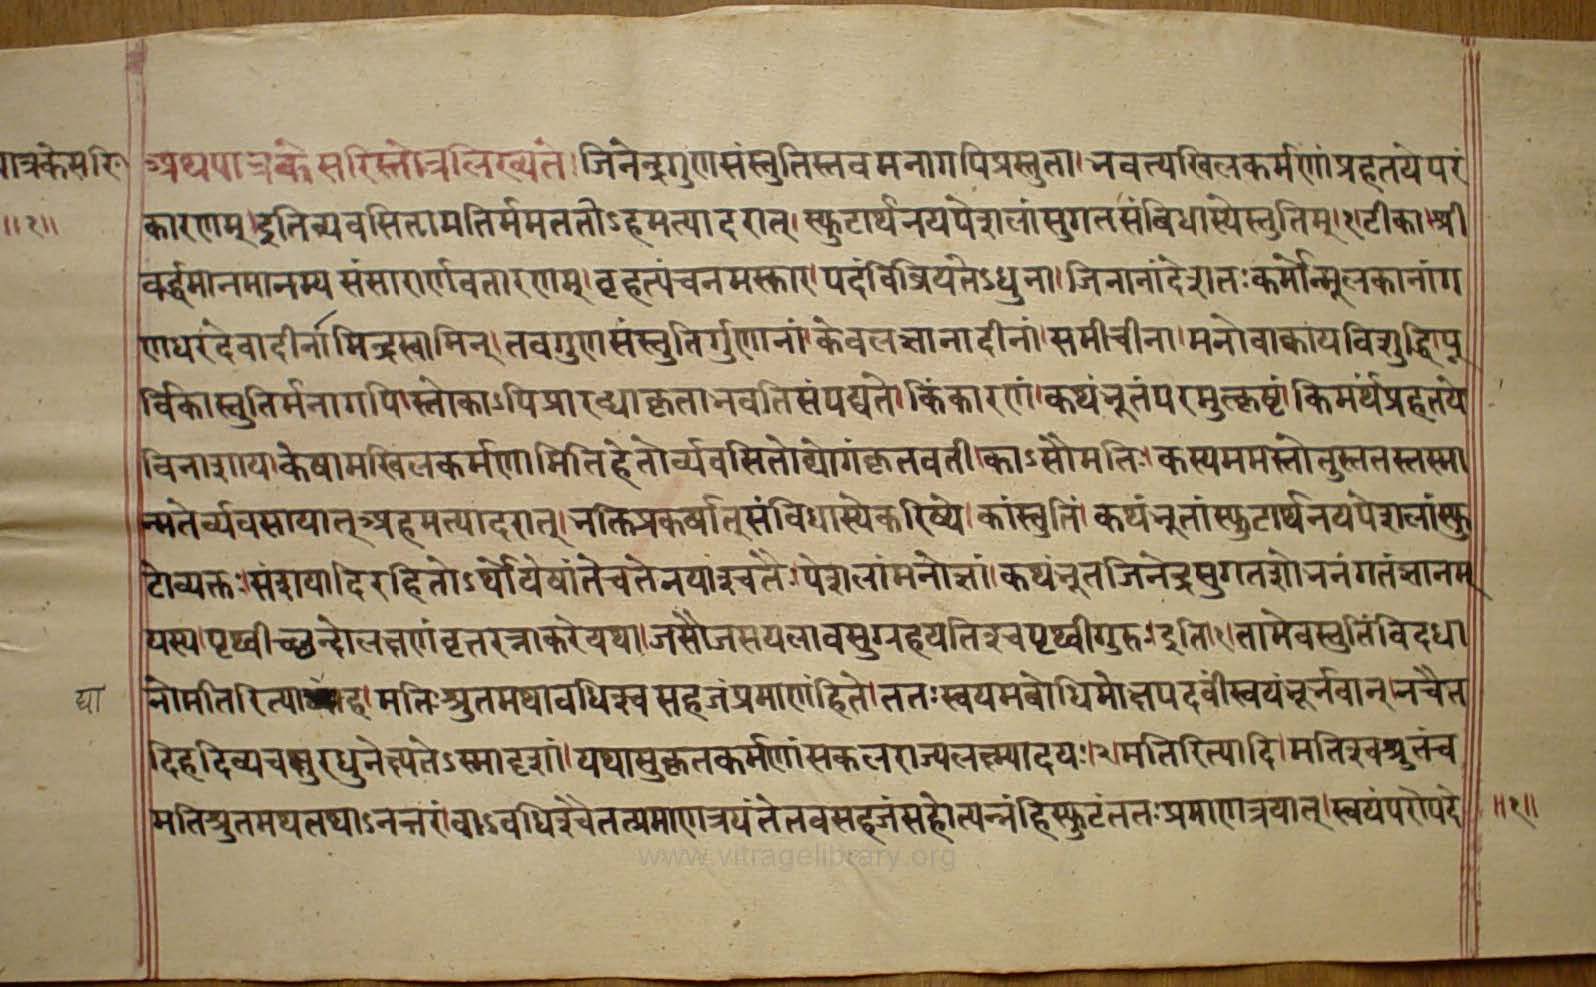 पात्रकेसरि॰
॥१॥
अथपात्रकेसरिस्तोत्रलिख्यते। जिनेन्द्रगुणसंस्तुतिस्तवमनागपिप्रस्तुता। भवत्यखिलकर्मणांप्रहतयेपरं
कारणम्। इतिव्यवसितामतिर्ममततोऽहमत्यादरात्। स्फुटार्थनयपेशलांसुगतसंविधास्येस्तुतिम्।१।टीका। श्री
वर्द्धमानमानम्य संसारार्णवतारणम्। वृहत्पंचनमस्कार। पदंविव्रियतेऽधुना। जिनानांदेशतःकर्मोन्मूलकानांग
णधरदेवादीनांमिन्द्रस्वामिन्। तवगुणसंस्तुतिर्गुणानां। केवलज्ञानादीनां। समीचीना। मनोवाक्कायविशुद्धिपू
र्विका। स्तुतिर्मनागपि। स्तोकाऽपिप्रारब्धाकृताभवतिसंपद्यते। किंकारणं। कथंभूतंपरमुत्कृष्टं। किमर्थंप्रहतये
विनाशाय। केषामखिलकर्मणामितिहेतोर्व्यवसितोद्योगंकृतवती। काऽसौमतिः। कस्यममस्तोतुस्ततस्तस्मा
न्मतेर्व्यवसायात्अहमत्यादरात्। भक्तिप्रकर्षात्संविधास्येकरिष्ये। कांस्तुतिं। कथंभूतांस्फुटार्थनयपेशलांस्फु
टोव्यक्तः। संशयादिरहितोऽर्थोयेषांतेचतेनयाश्चतैः। पेशलांमनोज्ञां। कथंभूतजिनेन्द्रसुगतशोभनंगतंज्ञानम्
यस्य। पृथ्वीच्छन्दोलक्षणंवृत्तरत्नाकरेयथा। जसौजसयलावसुग्रहयतिश्चपृथ्वीगुरुः। इति।१। तामेवस्तुतिंविदधा
द्या
नोमतिरित्याह। मतिःश्रुतमथावधिश्च सहजंप्रमाणंहिते। ततःस्वयमबोधिमोक्षपदवींस्वयंभूर्भवान्। नचैत
दिहदिव्यचक्षुरधुनेक्ष्यतेऽस्मादृशां। यथासुकृतकर्मणांसकलराज्यलक्ष्म्यादयः।२। मतिरित्यादि। मतिश्चश्रुतंच
मतिश्रुतमथतथाऽनन्तरंवाऽवधिश्चैतत्प्रमाणत्रयंतेतवसहजंसहोत्पन्नंहिस्फुटंततःप्रमाणत्रयात्। स्वयंपरोपदे
॥१॥
www.vitragelibrary.org